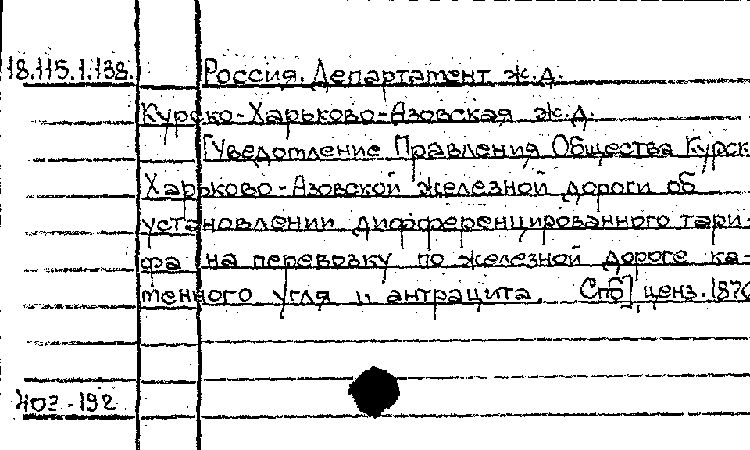 18.115.1.138. Россия. Департамент ж.д.
Курско-Харьково-Азовская ж.д.
[Уведомление Правления Общества Курск
Харьково-Азовской железной дороги об
установлении дифференцированного тари-
фа на перевозку по железной дороге ка-
менного угля и антрацита. Спб], ценз. 187
-192